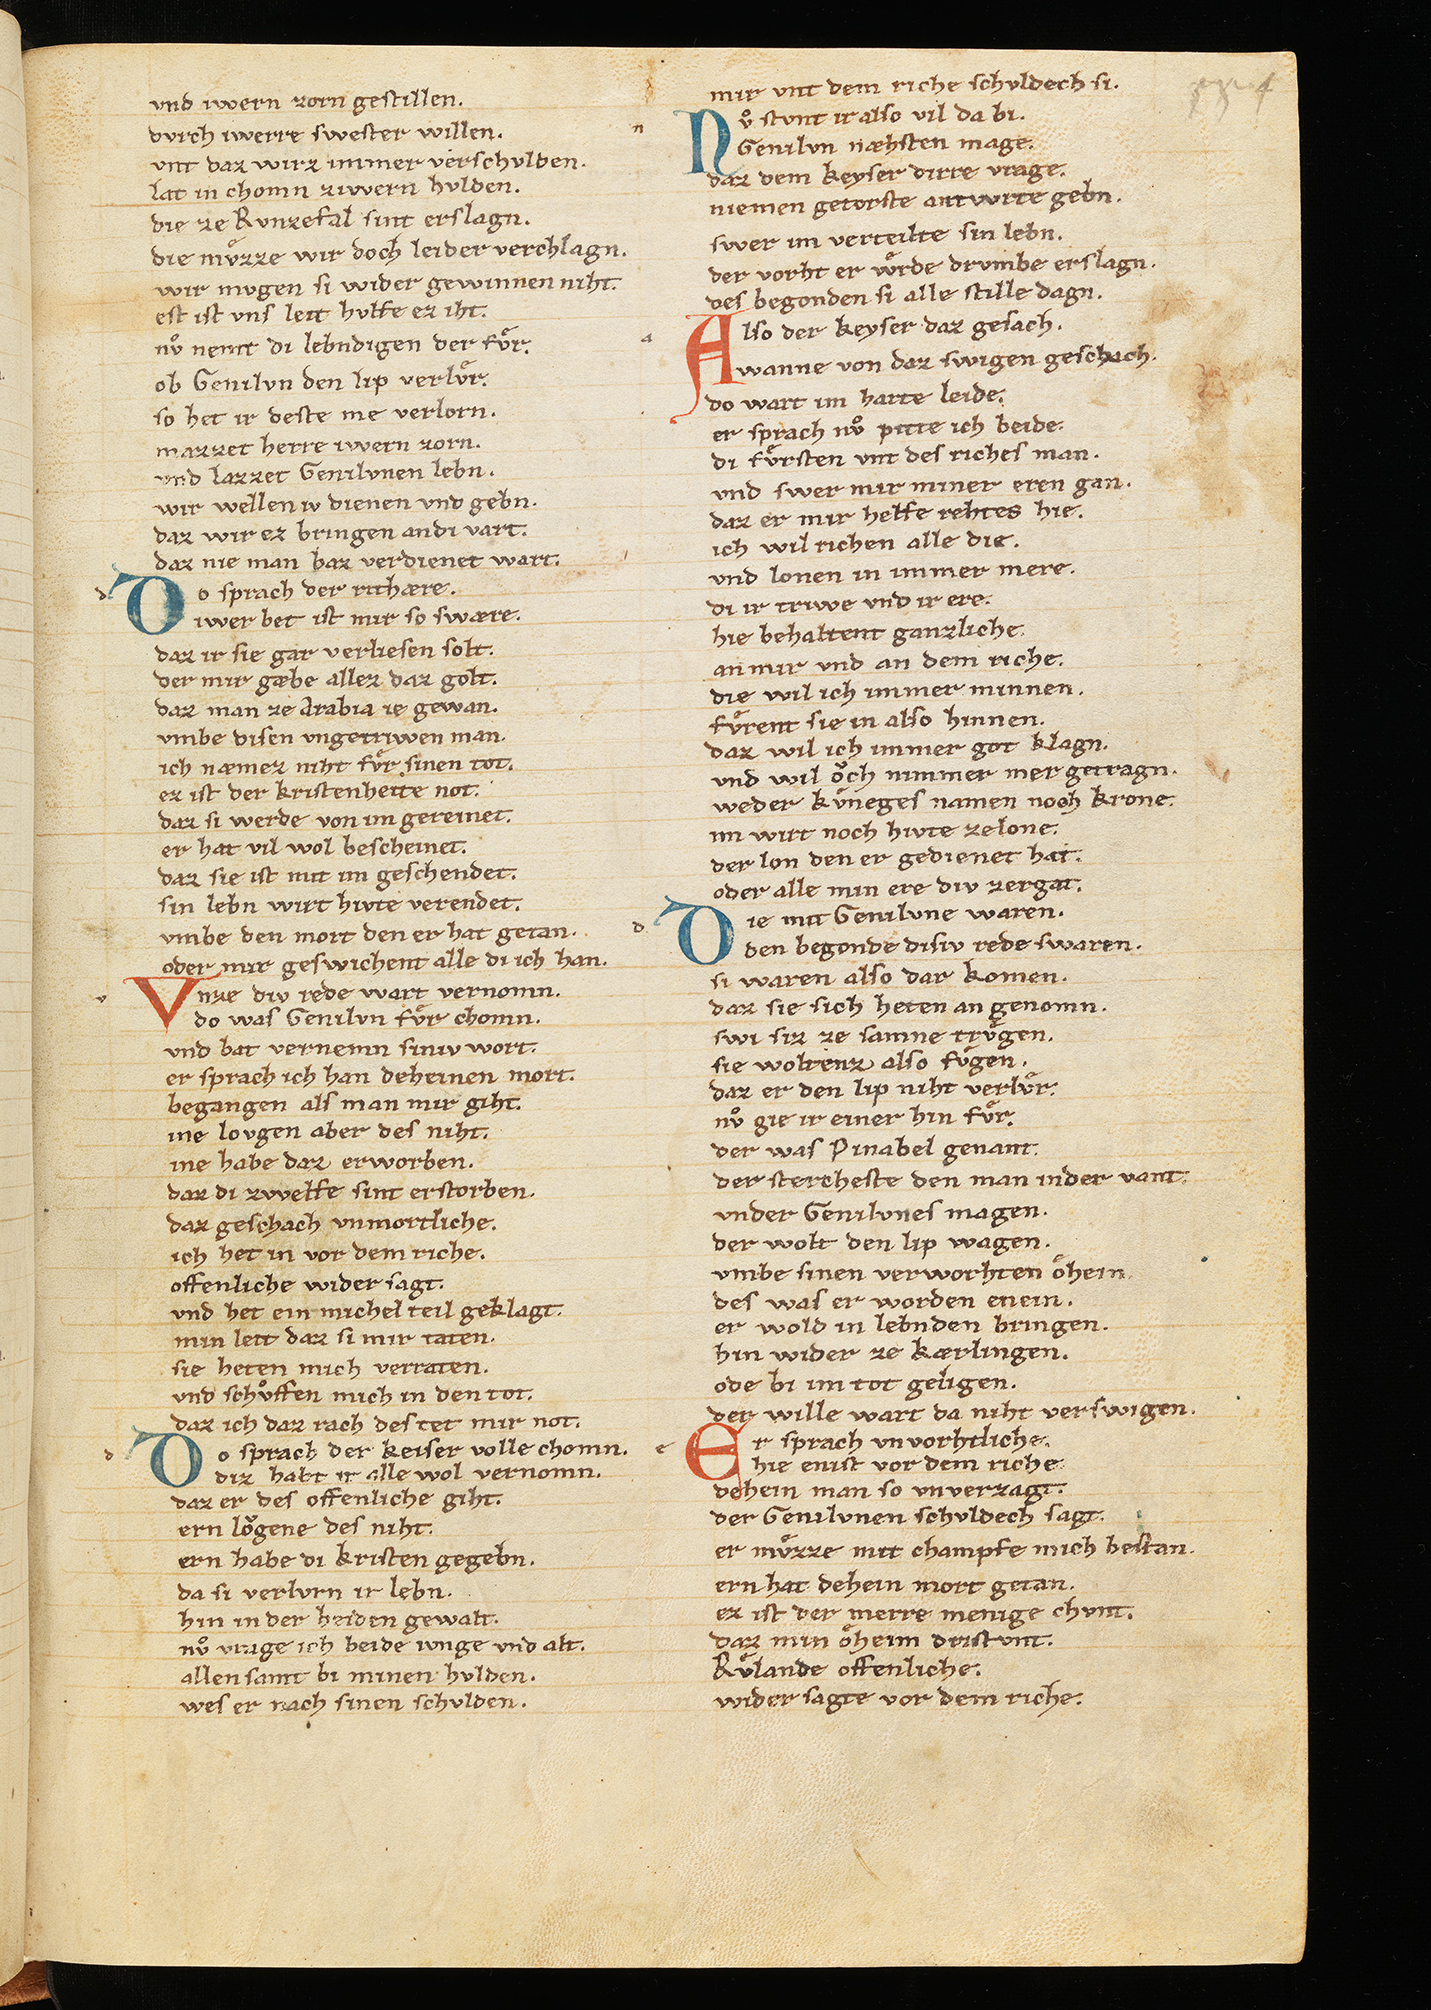 vnd iwern zorn gestillen.
dvrch iwerre swester willen.
vnt daz wirz immer verschvlden.
lat in chomn ziwern hvlden.
die ze Rvnzefal sint erslagn.
die mvͤzze wir doch leider verchlagn.
wir mvgen si wider gewinnen niht.
est ist vns leit hvlfe ez iht.
nvͦ nemt di lebndigen der fvͤr.
ob Genilvn den lip verlvͤr.
so het ir deste me verlorn.
mazzet herre iwern zorn.
vnd lazzet Genilvnen lebn.
wir wellen iv dienen vnd gebn.
daz wir ez bringen andi vart.
daz nie man baz verdienet wart.
Do sprach der rihtære.
iwer bet ist mir so swære.
daz ir sie gar verliesen solt.
der mir gæbe allez daz golt.
daz man ze Arabia ie gewan.
vmbe disen vngetriwen man.
ich næmez niht fvͤr sinen tot.
ez ist der kristenheite not.
daz si werde von im gereinet.
er hat vil wol bescheinet.
daz sie ist mit im geschendet.
sin lebn wirt hivte verendet.
vmbe den mort den er hat getan.
oder mir geswichent alle di ich han.
Vnze div rede wart vernomn.
do was Genilvn fvͤr chomn.
vnd bat vernemn siniv wort.
er sprach ich han deheinen mort.
begangen als man mir giht.
ine lovgen aber des niht.
ine habe daz erworben.
daz di zwelfe sint erstorben.
daz geschach vnmortliche.
ich het in vor dem riche.
offenliche wider sagt.
vnd het ein michel teil geklagt.
min leit daz si mir taten.
sie heten mich verraten.
vnd schvͦffen mich in den tot.
daz ich daz rach des tet mir not.
Do sprach der keiser volle chomn.
diz habt ir alle wol vernomn.
daz er des offenliche giht.
ern loͮgene des niht.
ern habe di kristen gegebn.
da si verlvrn ir lebn.
hin in der heiden gewalt.
nvͦ vrage ich beide ivnge vnd alt.
allen samt bi minen hvlden.
wes er nach sinen schvlden.
mir vnt dem riche schvldech si.
Nvͦ stvnt ir also vil da bi.
Genilvn næhsten mage.
daz dem keyser dirre vrage.
niemen getorste antwrte gebn.
swer im verteilte sin lebn.
der vorht er wͤrde drvmbe erslagn.
des begonden si alle stille dagn.
Also der keyser daz gesach.
wanne von daz swigen geschach.
do wart im harte leide.
er sprach nvͦ pitte ich beide.
di fvͤrsten vnt des riches man.
vnd swer mir miner eren gan.
daz er mir helfe rehtes hie.
ich wil richen alle die.
vnd lonen in immer mere.
di ir triwe vnd ir ere.
hie behaltent ganzliche.
an mir vnd an dem riche.
die wil ich immer minnen.
fvͤrent sie in also hinnen.
daz wil ich immer got klagn.
vnd wil oͮch nimmer mer getragn.
weder kvͤneges namen noch krone.
im wirt noch hivte zelone.
der lon den er gedienet hat.
oder alle min ere div zergat.
Die mit Genilvne waren.
den begonde disiv rede swaren.
si waren also dar komen.
daz sie sich heten an genomn.
swi siz ze samne trvͤgen.
sie woltenz also fvͤgen.
daz er den lip niht verlvͤr.
nvͦ gie ir einer hin fvͤr.
der was Pinabel genant.
der stercheste den man inder vant.
vnder Genilvnes magen.
der wolt den lip wagen.
vmbe sinen verworhten oͤhein
des was er worden enein.
er wold in lebnden bringen.
hin wider ze kærlingen.
ode bi im tot geligen.
der wille wart da niht verswigen.
Er sprach vnvorhtliche.
hie enist vor dem riche
dehein man so vnverzagt.
der Genilvnen schvldech sagt.
er mvͤzze mit champfe mich bestan.
ern hat dehein mort getan.
ez ist der merre menige chvnt.
daz min oͤheim dristvnt.
Rvͤlande offenliche.
wider sagte vor dem riche.